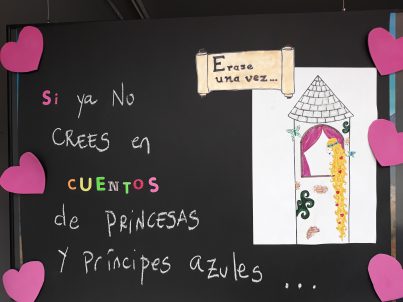 Erase
una vez...
Si ya No
CREES en
CUENTOS
de PRINCESAS
Y Príncipes azules ...